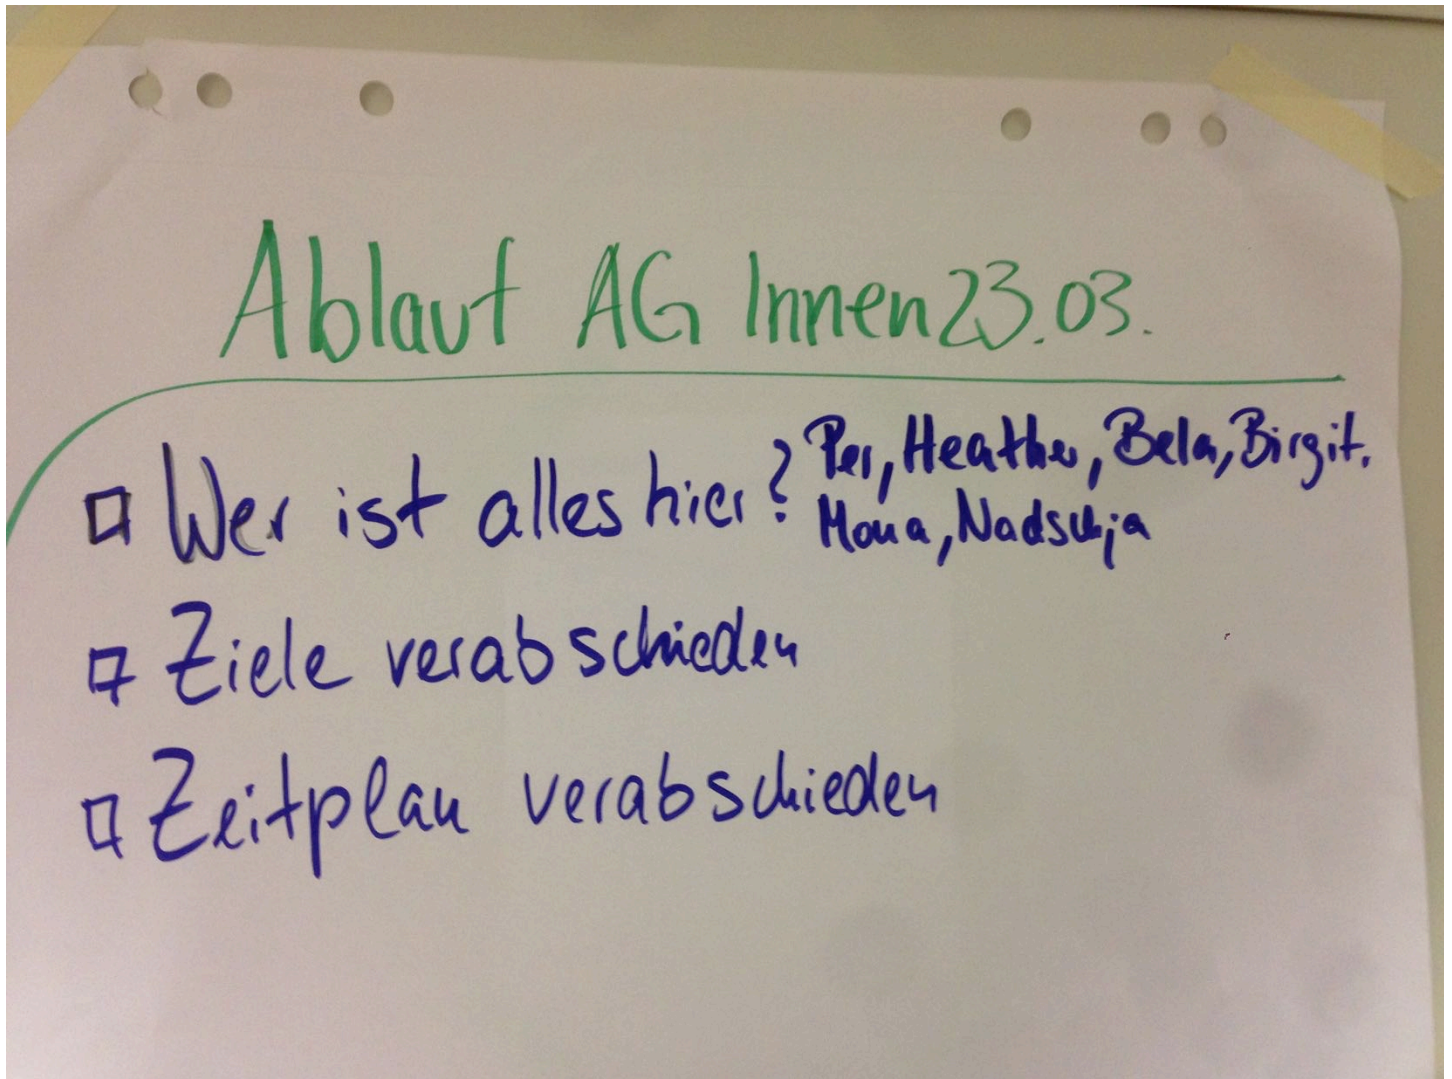 Ablauf AG Innen 23.03.
□ Wer ist alles hier? Per, Heather, Bela, Birgit,
Mona, Nadschja
□ Ziele verabschieden
□ Zeitplan verabschieden